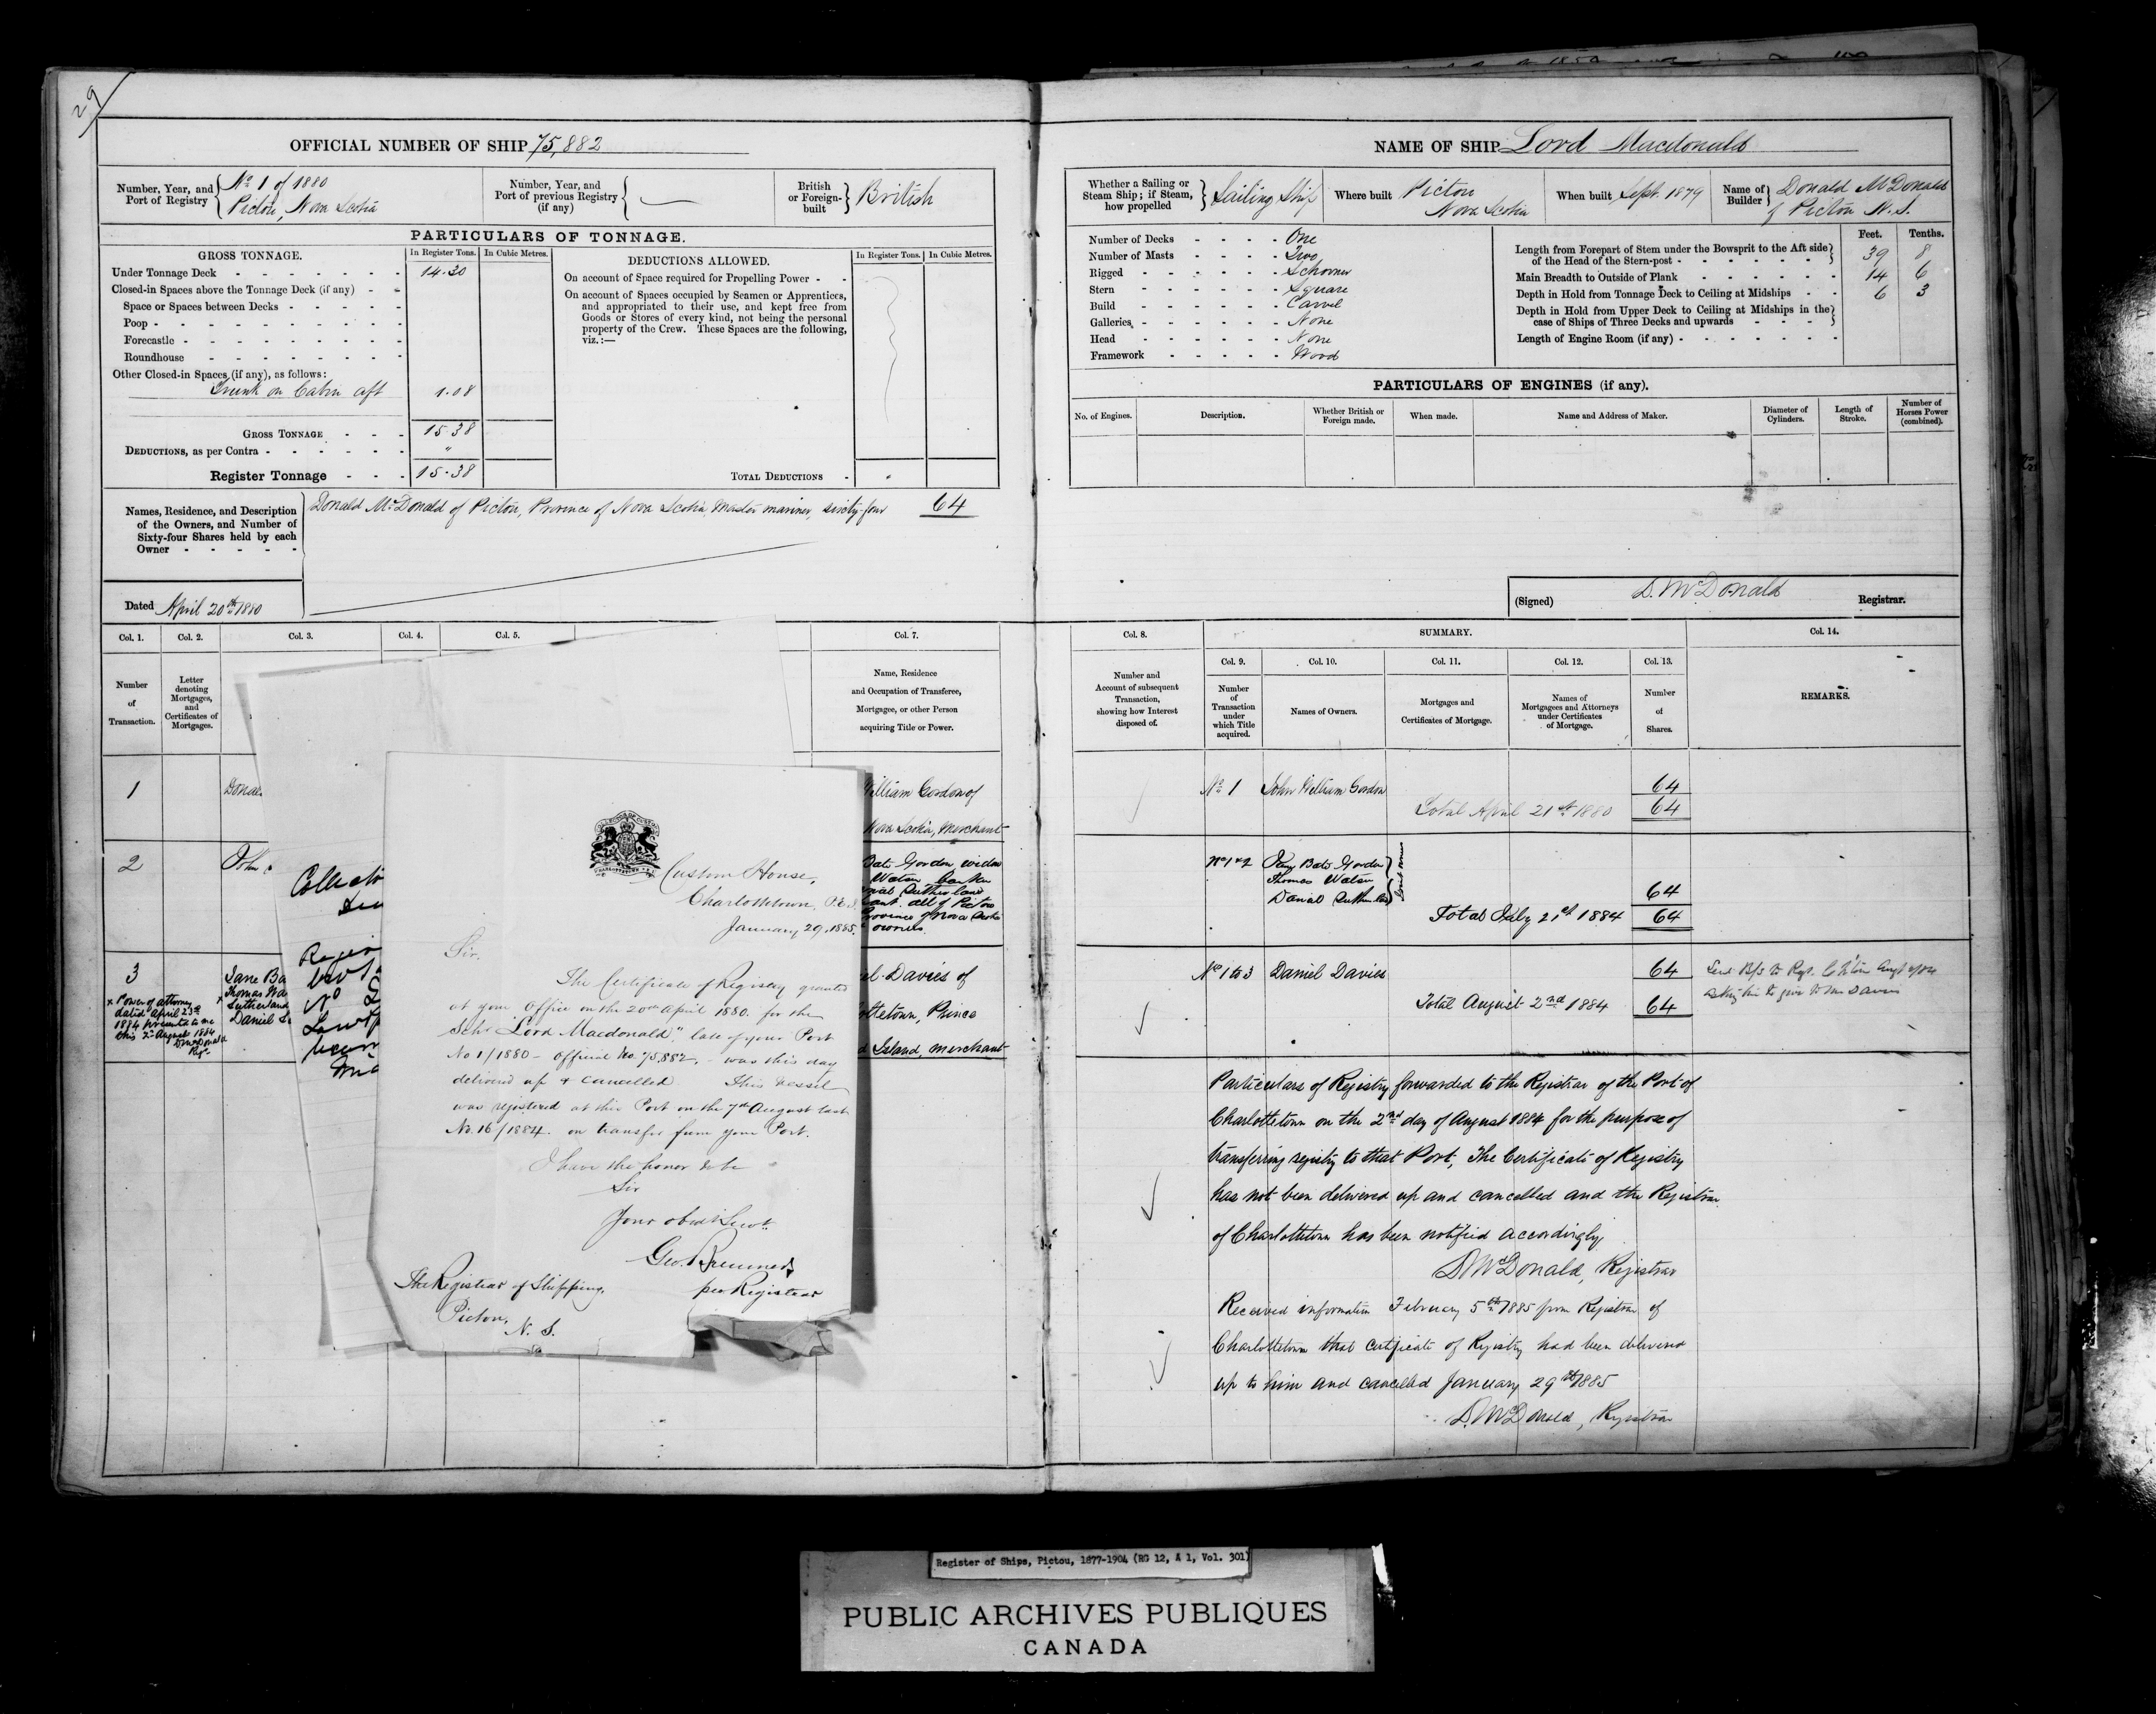 29
OFFICIAL NUMBER OF SHIP 75,882
Number, Year, and Port of Registry
No 1 of 1880
Pictou, Nova Scotia
Number, Year, and Port of previous Registry (if any)
British or Foreign-built
British
PARTICULARS OF TONNAGE.
GROSS TONNAGE.
In Register Tons.
In Cubic Metres.
Under Tonnage Deck 14.30
Closed-in Spaces above the Tonnage Deck (if any)
Space or Spaces between Decks
Poop
Forecastle
Roundhouse
Other Closed-in Spaces (if any), as follows:
Trunk on Cabin aft 1.08
GROSS TONNAGE 15.38
DEDUCTIONS, as per Contra "
Register Tonnage 15.38
DEDUCTIONS ALLOWED.
In Register Tons.
In Cubic Metres.
On account of Space required for Propelling Power
On account of Spaces occupied by Seamen or Apprentices,
and appropriated to their use, and kept free from
Goods or Stores of every kind, not being the personal
property of the Crew. These Spaces are the following,
viz.:—
TOTAL DEDUCTIONS
Names, Residence, and Description
of the Owners, and Number of
Sixty-four Shares held by each
Owner
Donald McDonald of Pictou, Province of Nova Scotia, Master mariner, sixty-four 64
Dated April 20th 1880
Col. 1.
Col. 2.
Col. 3.
Col. 4.
Col. 5.
Col. 7.
Number of Transaction.
Letter denoting Mortgages, and Certificates of Mortgages.
Name, Residence
and Occupation of Transferee,
Mortgagee, or other Person
acquiring Title or Power.
1
Donal
William Gordon of
Nova Scotia, Merchant
2
John
Bate Gordon, widow
Watson banker
Sutherland
all of Pictou
Province of Nova Scotia
owners.
3
Jane Ba
Thomas Wa
Sutherland
Daniel S
x Power of attorney
dated April 23rd
1884 presented to me
this 2nd August 1884
D McDonald
Regr
Davies of
Prince
Island, merchant
Custom House,
Charlottetown, P.E.I.
January 29, 1885.
Sir,
The Certificate of Registry granted
at your Office on the 20th April 1880. for the
Schr "Lord Macdonald", late of your Port
No 1/1880 - Official No. 75,882, - was this day
delivered up & cancelled This vessel
was registered at this Port on the 7th August last
No. 16/1884. on transfer from your Port.
I have the honor to be
Sir
Your obedt Servt
Geo.
per Registrar
The Registrar of Shipping,
Pictou,
N. S.
NAME OF SHIP Lord Macdonald
Whether a Sailing or Steam Ship; if Steam, how propelled
Sailing Ship
Where built
Pictou
Nova Scotia
When built Sept. 1879
Name of Builder
Donald McDonald
of Pictou N. S.
Number of Decks One
Number of Masts Two
Rigged Schooner
Stern Square
Build Carvel
Galleries None
Head None
Framework Wood
Feet. Tenths.
Length from Forepart of Stem under the Bowsprit to the Aft side
of the Head of the Stern-post 39 8
Main Breadth to Outside of Plank 14 6
Depth in Hold from Tonnage Deck to Ceiling at Midships 6 3
Depth in Hold from Upper Deck to Ceiling at Midships in the
case of Ships of Three Decks and upwards
Length of Engine Room (if any)
PARTICULARS OF ENGINES (if any).
No. of Engines.
Description.
Whether British or Foreign made.
When made.
Name and Address of Maker.
Diameter of Cylinders.
Length of Stroke.
Number of Horses Power (combined).
(Signed) D. McDonald Registrar.
Col. 8.
SUMMARY.
Col. 14.
Col. 9.
Col. 10.
Col. 11.
Col. 12.
Col. 13.
Number and
Account of subsequent
Transaction,
showing how Interest
disposed of.
Number of Transaction under which Title acquired.
Names of Owners.
Mortgages and
Certificates of Mortgage.
Names of
Mortgagees and Attorneys
under Certificates
of Mortgage.
Number of Shares.
REMARKS.
No 1 John William Gordon 64
Total April 21st 1880 64
No 1 & 2 Jane Bate Gordon
Thomas Watson
Daniel Sutherland
64
Total July 21st 1884 64
No 1 to 3 Daniel Davies 64
Total August 2nd 1884 64
Particulars of Registry forwarded to the Registrar of the Port of
Charlottetown on the 2nd day of August 1884 for the purpose of
transferring registry to that Port, The Certificate of Registry
has not been delivered up and cancelled and the Registrar
of Charlottetown has been notified accordingly,
D McDonald, Registrar
Received information February 5th 1885 from Registrar of
Charlottetown that certificate of Registry had been delivered
up to him and cancelled January 29th 1885
D. McDonald, Registrar
Register of Ships, Pictou, 1877-1904 (RG 12, A 1, Vol. 301)
PUBLIC ARCHIVES PUBLIQUES
CANADA